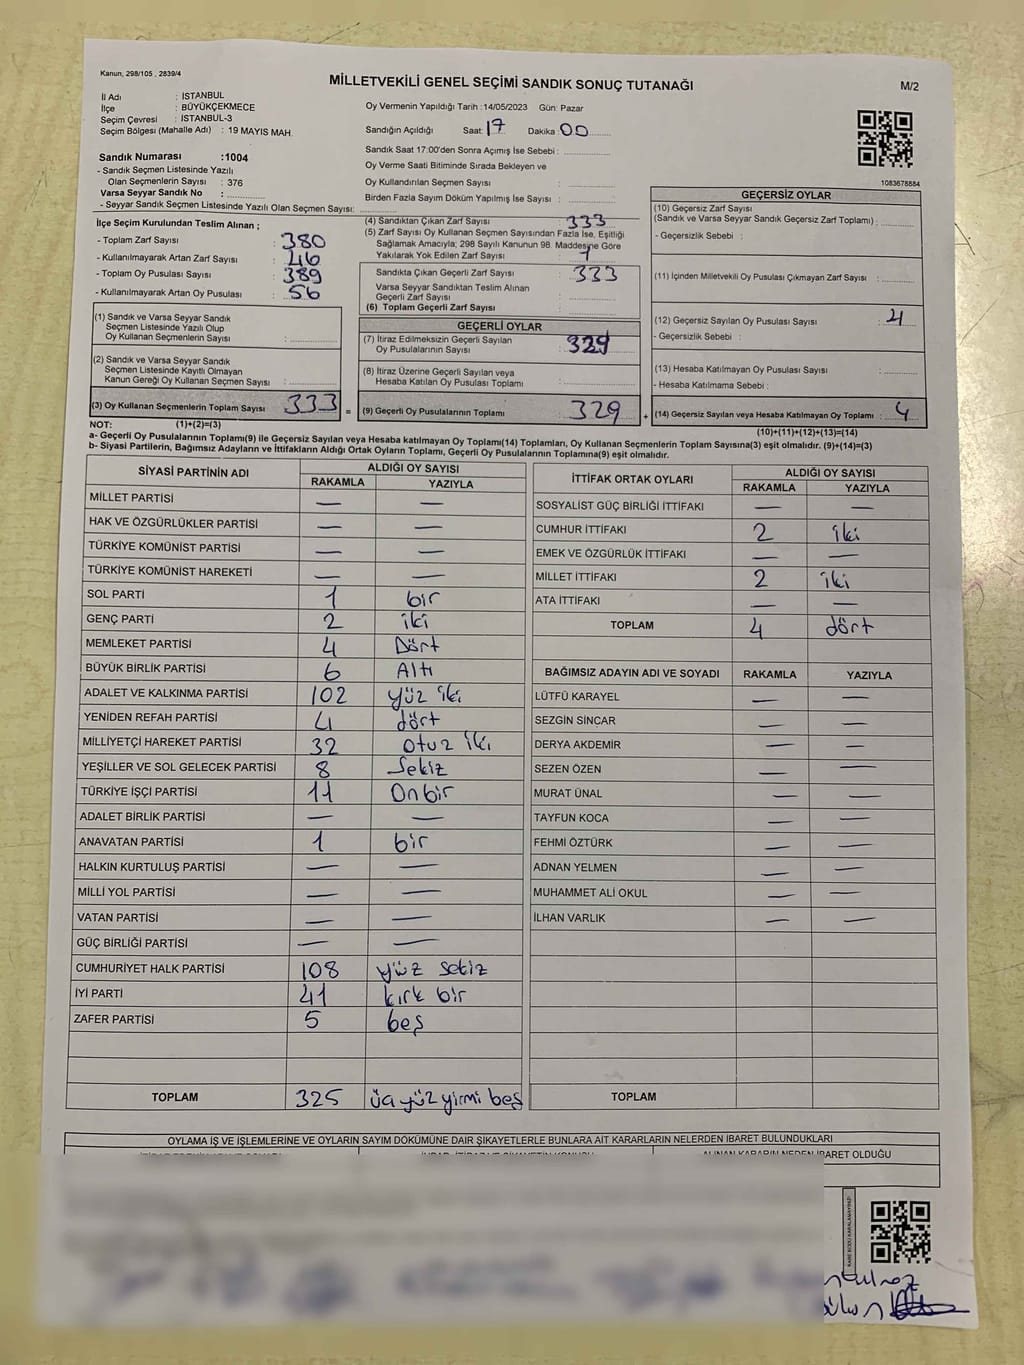 Kanun, 298/105 , 2839/4
MİLLETVEKİLİ GENEL SEÇİMİ SANDIK SONUÇ TUTANAĞI
M/2
İl Adı : İSTANBUL
İlçe : BÜYÜKÇEKMECE
Seçim Çevresi : İSTANBUL-3
Seçim Bölgesi (Mahalle Adı) : 19 MAYIS MAH.
Oy Vermenin Yapıldığı Tarih :14/05/2023 Gün: Pazar
Sandığın Açıldığı Saat: 17 Dakika : 00
Sandık Saat 17:00'den Sonra Açımış İse Sebebi :
Oy Verme Saati Bitiminde Sırada Bekleyen ve
Oy Kullandırılan Seçmen Sayısı :
Birden Fazla Sayım Döküm Yapılmış İse Sayısı :
1083678884
Sandık Numarası :1004
- Sandık Seçmen Listesinde Yazılı
Olan Seçmenlerin Sayısı : 376
Varsa Seyyar Sandık No :
- Seyyar Sandık Seçmen Listesinde Yazılı Olan Seçmen Sayısı:
İlçe Seçim Kurulundan Teslim Alınan ;
- Toplam Zarf Sayısı : 380
- Kullanılmayarak Artan Zarf Sayısı : 46
- Toplam Oy Pusulası Sayısı : 389
- Kullanılmayarak Artan Oy Pusulası : 56
(1) Sandık ve Varsa Seyyar Sandık
Seçmen Listesinde Yazılı Olup
Oy Kullanan Seçmenlerin Sayısı :
(2) Sandık ve Varsa Seyyar Sandık
Seçmen Listesinde Kayıtlı Olmayan
Kanun Gereği Oy Kullanan Seçmen Sayısı :
(3) Oy Kullanan Seçmenlerin Toplam Sayısı : 333 =
(1)+(2)=(3)
(4) Sandıktan Çıkan Zarf Sayısı : 333
(5) Zarf Sayısı Oy Kullanan Seçmen Sayısından Fazla İse, Eşitliği
Sağlamak Amacıyla; 298 Sayılı Kanunun 98. Maddesine Göre
Yakılarak Yok Edilen Zarf Sayısı : 1
Sandıkta Çıkan Geçerli Zarf Sayısı : 333
Varsa Seyyar Sandıktan Teslim Alınan
Geçerli Zarf Sayısı :
(6) Toplam Geçerli Zarf Sayısı :
GEÇERLİ OYLAR
(7) İtiraz Edilmeksizin Geçerli Sayılan
Oy Pusulalarının Sayısı : 329
(8) İtiraz Üzerine Geçerli Sayılan veya
Hesaba Katılan Oy Pusulası Toplamı :
(9) Geçerli Oy Pusulalarının Toplamı : 329 +
GEÇERSİZ OYLAR
(10) Geçersiz Zarf Sayısı
(Sandık ve Varsa Seyyar Sandık Geçersiz Zarf Toplamı) :
- Geçersizlik Sebebi :
(11) İçinden Milletvekili Oy Pusulası Çıkmayan Zarf Sayısı :
(12) Geçersiz Sayılan Oy Pusulası Sayısı : 4
- Geçersizlik Sebebi :
(13) Hesaba Katılmayan Oy Pusulası Sayısı :
- Hesaba Katılmama Sebebi :
(14) Geçersiz Sayılan veya Hesaba Katılmayan Oy Toplamı : 4
(10)+(11)+(12)+(13)=(14)
NOT:
a- Geçerli Oy Pusulalarının Toplam(9) ile Geçersiz Sayılan veya Hesaba katılmayan Oy Toplamı(14) Toplamları, Oy Kullanan Seçmenlerin Toplam Sayısına(3) eşit olmalıdır. (9)+(14)=(3)
b- Siyasi Partilerin, Bağımsız Adayların ve İttifakların Aldığı Ortak Oyların Toplamı, Geçerli Oy Pusulalarının Toplamına(9) eşit olmalıdır.
SİYASİ PARTİNİN ADI ALDIĞI OY SAYISI
RAKAMLA YAZIYLA
MİLLET PARTİSİ — —
HAK VE ÖZGÜRLÜKLER PARTİSİ — —
TÜRKİYE KOMÜNİST PARTİSİ — —
TÜRKİYE KOMÜNİST HAREKETİ — —
SOL PARTİ 1 bir
GENÇ PARTİ 2 iki
MEMLEKET PARTİSİ 4 Dört
BÜYÜK BİRLİK PARTİSİ 6 Altı
ADALET VE KALKINMA PARTİSİ 102 yüz iki
YENİDEN REFAH PARTİSİ 4 dört
MİLLİYETÇİ HAREKET PARTİSİ 32 otuz iki
YEŞİLLER VE SOL GELECEK PARTİSİ 8 Sekiz
TÜRKİYE İŞÇİ PARTİSİ 11 Onbir
ADALET BİRLİK PARTİSİ — —
ANAVATAN PARTİSİ 1 bir
HALKIN KURTULUŞ PARTİSİ — —
MİLLİ YOL PARTİSİ — —
VATAN PARTİSİ — —
GÜÇ BİRLİĞİ PARTİSİ — —
CUMHURİYET HALK PARTİSİ 108 yüz sekiz
İYİ PARTİ 41 kırk bir
ZAFER PARTİSİ 5 beş
TOPLAM 325 üç yüz yirmi beş
İTTİFAK ORTAK OYLARI ALDIĞI OY SAYISI
RAKAMLA YAZIYLA
SOSYALİST GÜÇ BİRLİĞİ İTTİFAKI — —
CUMHUR İTTİFAKI 2 iki
EMEK VE ÖZGÜRLÜK İTTİFAKI — —
MİLLET İTTİFAKI 2 iki
ATA İTTİFAKI — —
TOPLAM 4 dört
BAĞIMSIZ ADAYIN ADI VE SOYADI RAKAMLA YAZIYLA
LÜTFÜ KARAYEL — —
SEZGİN SİNCAR — —
DERYA AKDEMİR — —
SEZEN ÖZEN — —
MURAT ÜNAL — —
TAYFUN KOCA — —
FEHMİ ÖZTÜRK — —
ADNAN YELMEN — —
MUHAMMET ALİ OKUL — —
İLHAN VARLIK — —
TOPLAM
OYLAMA İŞ VE İŞLEMLERİNE VE OYLARIN SAYIM DÖKÜMÜNE DAİR ŞİKAYETLERLE BUNLARA AİT KARARLARIN NELERDEN İBARET BULUNDUKLARI
ALINAN KARARIN NEDEN İBARET OLDUĞU